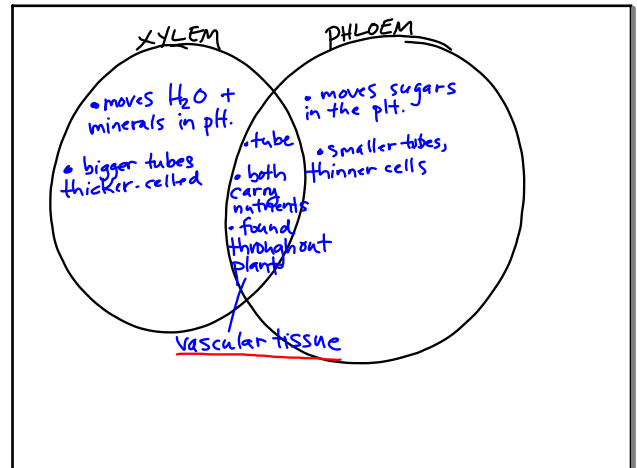 XYLEM
PHLOEM
• moves H₂O +
minerals in plt.
• bigger tubes
thicker-celled
• tube
• both
carry
nutrients
• found
throughout
plant
• moves sugars
in the plt.
• smaller tubes,
thinner cells
vascular tissue